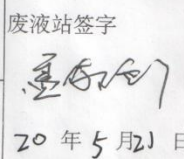 废液站签字
20 年 5 月 21 日